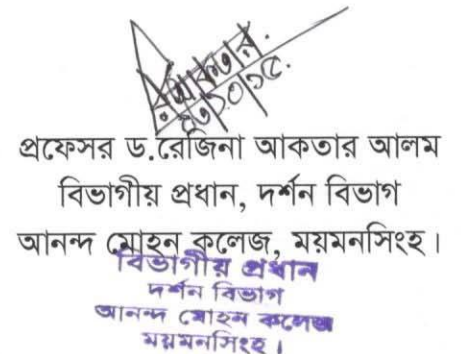 আকতার
প্রফেসর ড.রেজিনা আকতার আলম
বিভাগীয় প্রধান, দর্শন বিভাগ
আনন্দ মোহন কলেজ, ময়মনসিংহ।
বিভাগীয় প্রধান
দর্শন বিভাগ
আনন্দ মোহন কলেজ
ময়মনসিংহ।